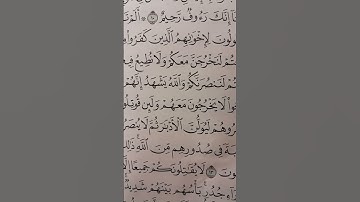 نَآ إِنَّكَ رَءُوفٌ رَّحِيمٌ ١٠ ۞ أَلَمْ تَرَ
ولُونَ لِإِخْوَٰنِهِمُ ٱلَّذِينَ كَفَرُوا۟
تُمْ لَنَخْرُجَنَّ مَعَكُمْ وَلَا نُطِيعُ فِي
تُمْ لَنَنصُرَنَّكُمْ وَٱللَّهُ يَشْهَدُ إِنَّهُمْ
وا۟ لَا يَخْرُجُونَ مَعَهُمْ وَلَئِن قُوتِلُوا۟
رُوهُمْ لَيُوَلُّنَّ ٱلْأَدْبَٰرَ ثُمَّ لَا يُنصَرُ
بَةً فِى صُدُورِهِم مِّنَ ٱللَّهِ ذَٰلِكَ
١٣ لَا يُقَٰتِلُونَكُمْ جَمِيعًا إِلَّا
رَآءِ جُدُرٍۭ بَأْسُهُم بَيْنَهُمْ شَدِيدٌ